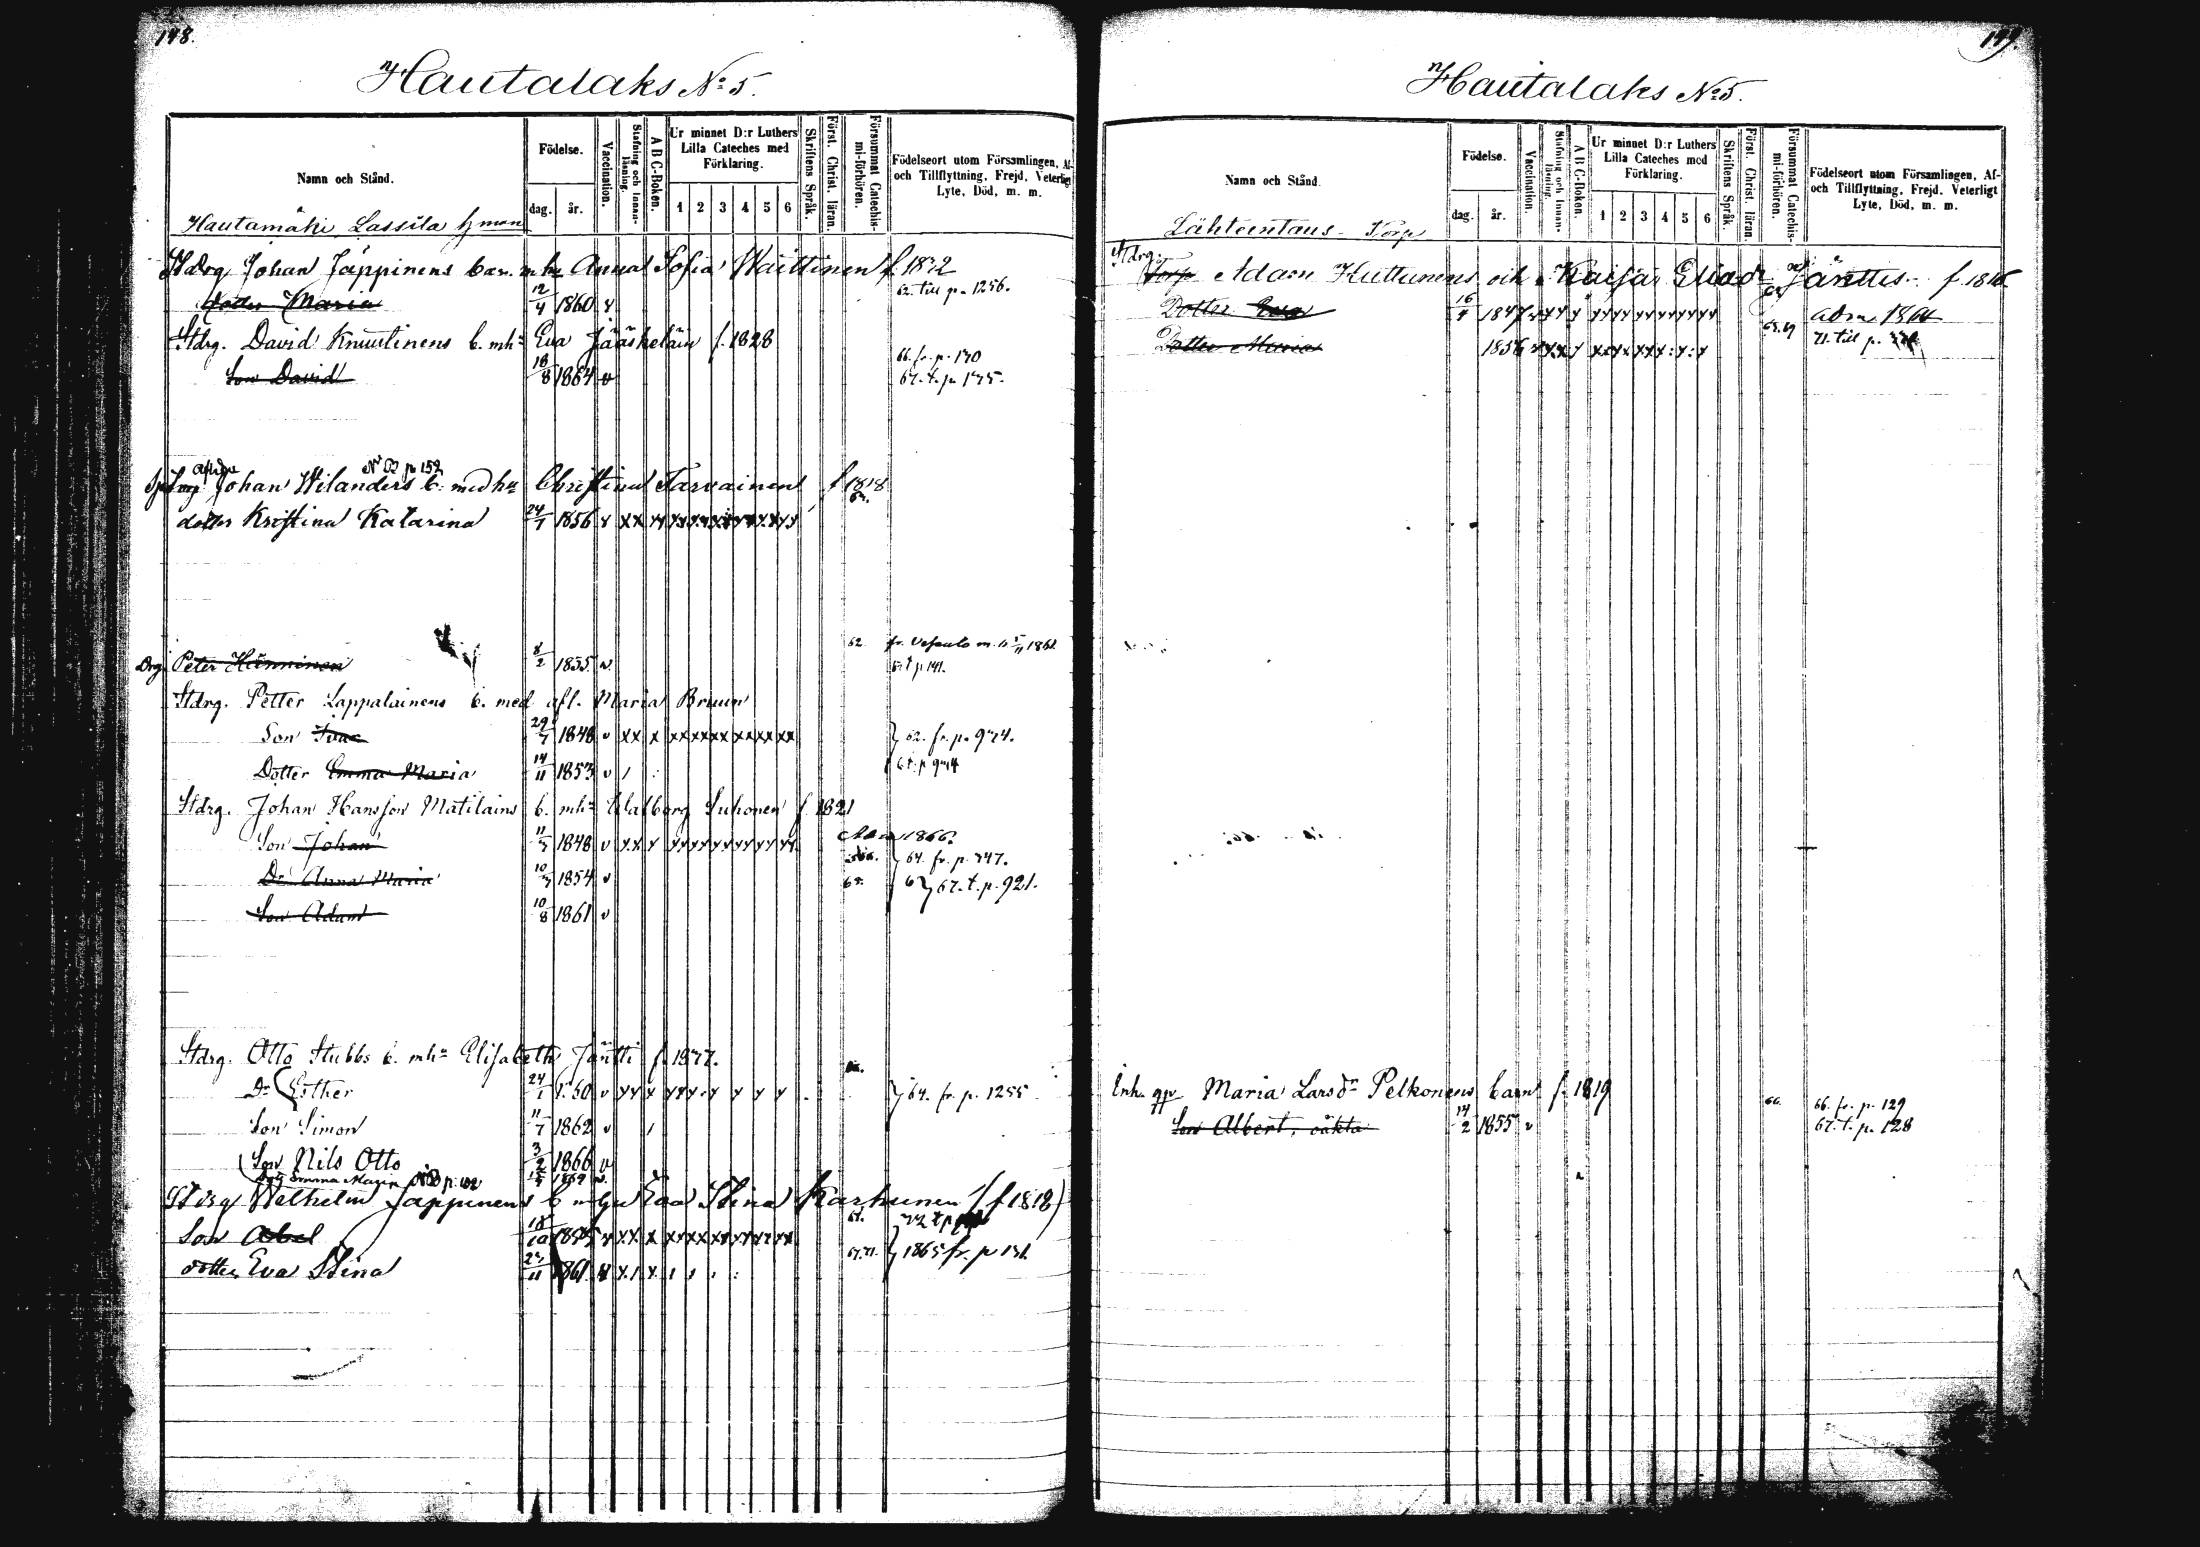 148.
Hautalaks No 5.
Namn och Stånd.
Födelse.
dag. år.
Vaccination.
Stafning och Innanläsning.
A B C-Boken.
Ur minnet D:r Luthers Lilla Cateches med Förklaring.
1 2 3 4 5 6
Skriftens Språk.
Först. Christ. läran.
Försummat Catechismi-förhören.
Födelseort utom Församlingen, Af- och Tillflyttning, Frejd, Veterligt Lyte, Död, m. m.
Hautamäki Lassila hman
Stdrg Johan Jäppinens barn mhu Anna Sofia Waittinen f. 1832
dotter Maria 12/4 1860 v 62. till p. 1256.
Stdrg. David Knuutinens b. mhu Eva Jääskeläin f. 1828
66. fr. p. 170
Son David 18/8 1864 v 67. t. p. 175.
NB p 152
Johan Wilanders b. med hu Christina Tarvainen f 1818
dotter Kristina Katarina 24/7 1856 v xx
62. fr. Vesanto
Drg. Peter Hänninen 8/2 1835 v
Stdrg. Petter Lappalainens b. med afl. Maria Bruun
Son Isac 29/7 1848 v xx x 62. fr. p. 974.
Dotter Emma Maria 14/11 1853 v
Stdrg. Johan Hansson Matilains b. mhu Walborg Suhonen f. 1821
Son Johan 11/5 1848 v xx x Adm 1866.
64. fr. p. 747.
Dr Anna Maria 10/3 1854 v 67. t. p. 921.
Son Adam 10/8 1861 v
Stdrg. Otto Stubbs b. mhu Elisabeth Jäntti f. 1827.
Dr Esther 24/1 1850 v xx x 64. fr. p. 1255
Son Simon 11/7 1862 v
Son Nils Otto 3/2 1866 v
Dotter Emma Maria 1869 v.
Stdrg Wilhelm Jäppinens b mhu Eva Stina Karhunen (f 1818)
Son Abel 1845 v xx x
dotter Eva Stina 1861 1865 fr. p 131.
149.
Hautalaks No 5.
Namn och Stånd.
Födelse.
dag. år.
Vaccination.
Stafning och Innanläsning.
A B C-Boken.
Ur minnet D:r Luthers Lilla Cateches med Förklaring.
1 2 3 4 5 6
Skriftens Språk.
Först. Christ. läran.
Försummat Catechismi-förhören.
Födelseort utom Församlingen, Af- och Tillflyttning, Frejd, Veterligt Lyte, Död, m. m.
Lähteentaus Torp
Stdrg:
Torp Adam Huttunens och Kaisa Eliædr Jänttis f 1816
Dotter Eva 16/4 1847 adm 1864
Dotter Maria 1856 71. till p.
Inh. qp. Maria Larsdr Pelkonens barn f. 1819
66. 66. fr. p. 129
Son Albert, oäkta 14/2 1855 v 67. t. p. 128